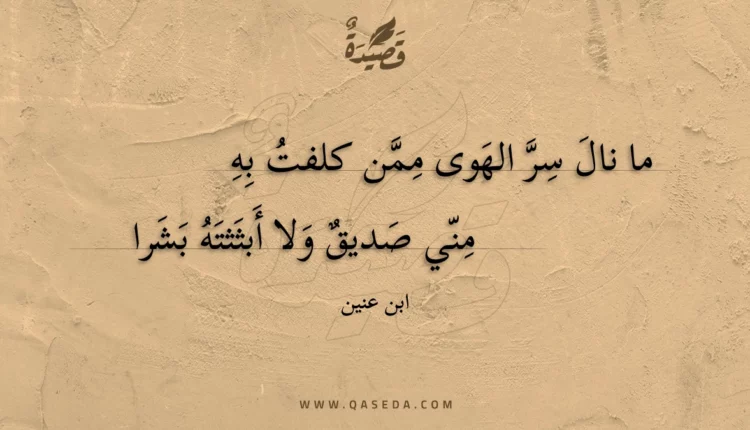 قَصِيدَةٌ
ما نالَ سِرَّ الهَوى مِمَّن كلفتُ بِهِ
مِنّي صَديقٌ وَلا أَبثَثتَهُ بَشَرا
ابن عنين
WWW.QASEDA.COM